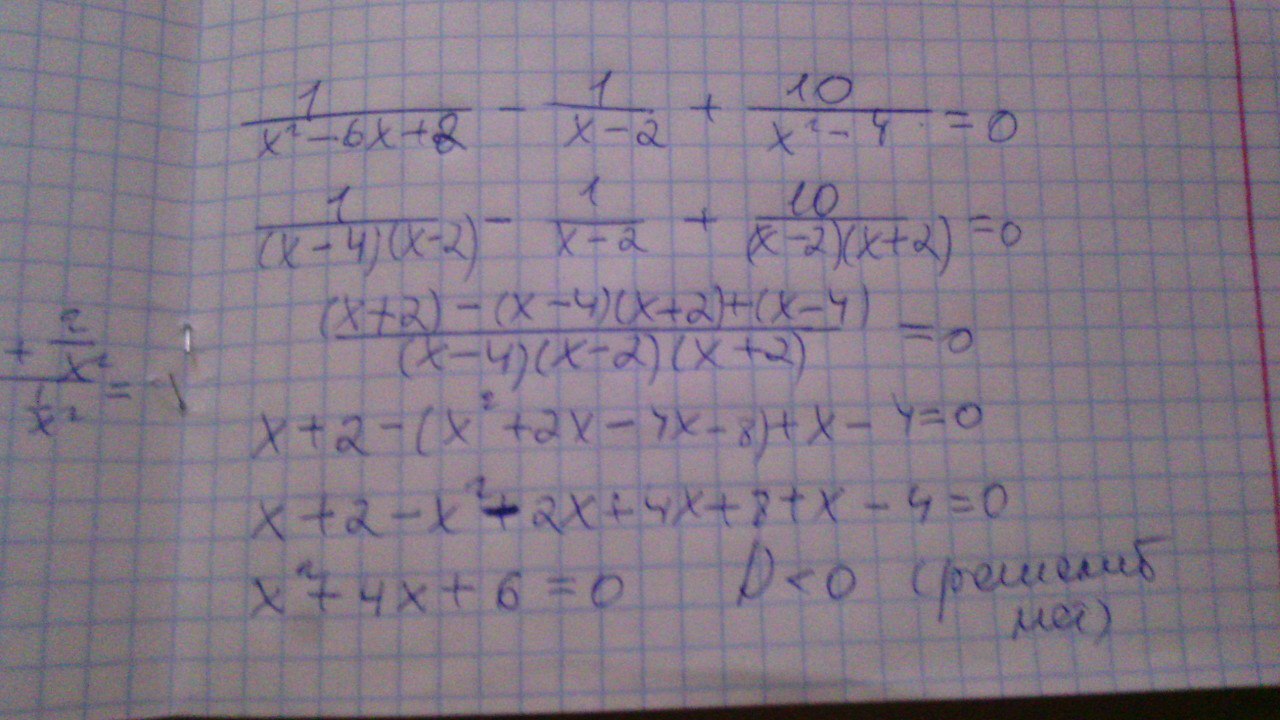 1/(x²-6x+8) - 1/(x-2) + 10/(x²-4) = 0
1/((x-4)(x-2)) - 1/(x-2) + 10/((x-2)(x+2)) = 0
((x+2)-(x-4)(x+2)+(x-4))/((x-4)(x-2)(x+2)) = 0
x+2-(x²+2x-4x-8)+x-4=0
x+2-x²-2x+4x+8+x-4=0
x²+4x+6=0 D<0 (решений
нет)
+ 2/x²
1/x² =